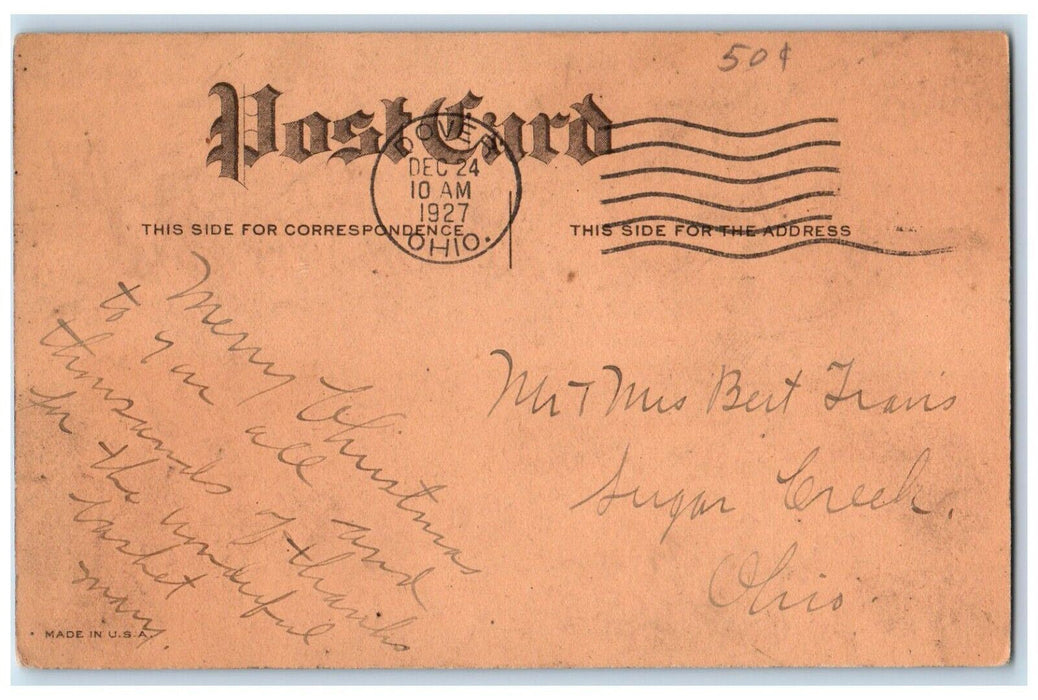 50¢
Post Card
DOVER
DEC 24
10 AM
1927
OHIO.
THIS SIDE FOR CORRESPONDENCE
THIS SIDE FOR THE ADDRESS
Merry Christmas
to you all and
thousands of thanks
for the wonderful
basket
Mary
Mr + Mrs Bert Travis
Sugar Creek.
Ohio.
MADE IN U.S.A.